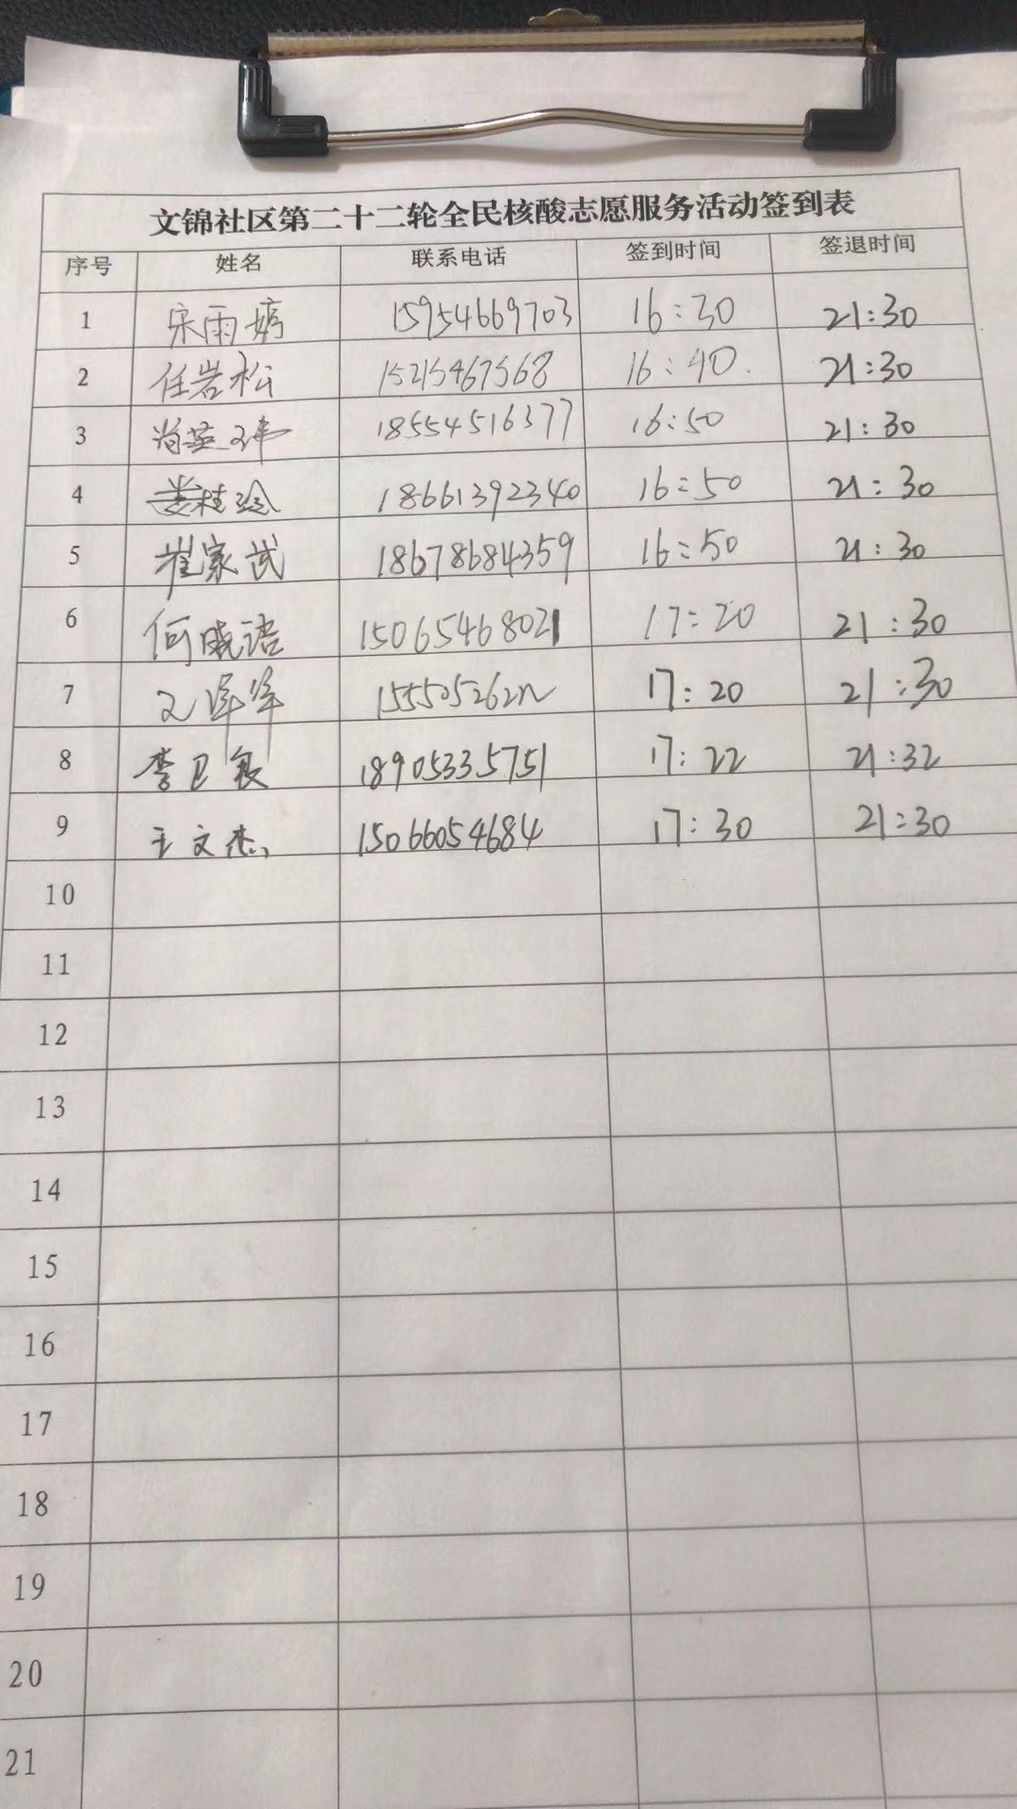 文锦社区第二十二轮全民核酸志愿服务活动签到表
序号 姓名 联系电话 签到时间 签退时间
1 宋雨婷 15954669703 16:30 21:30
2 任岩松 15215467568 16:40. 21:30
3 18554516377 16:50 21:30
4 娄桂玲 18661392340 16:50 21:30
5 崔家武 18678684359 16:50 21:30
6 何晓语 15065468021 17:20 21:30
7 17:20 21:30
8 李卫良 18905335751 17:22 21:32
9 王文杰 15066054684 17:30 21:30
10
11
12
13
14
15
16
17
18
19
20
21